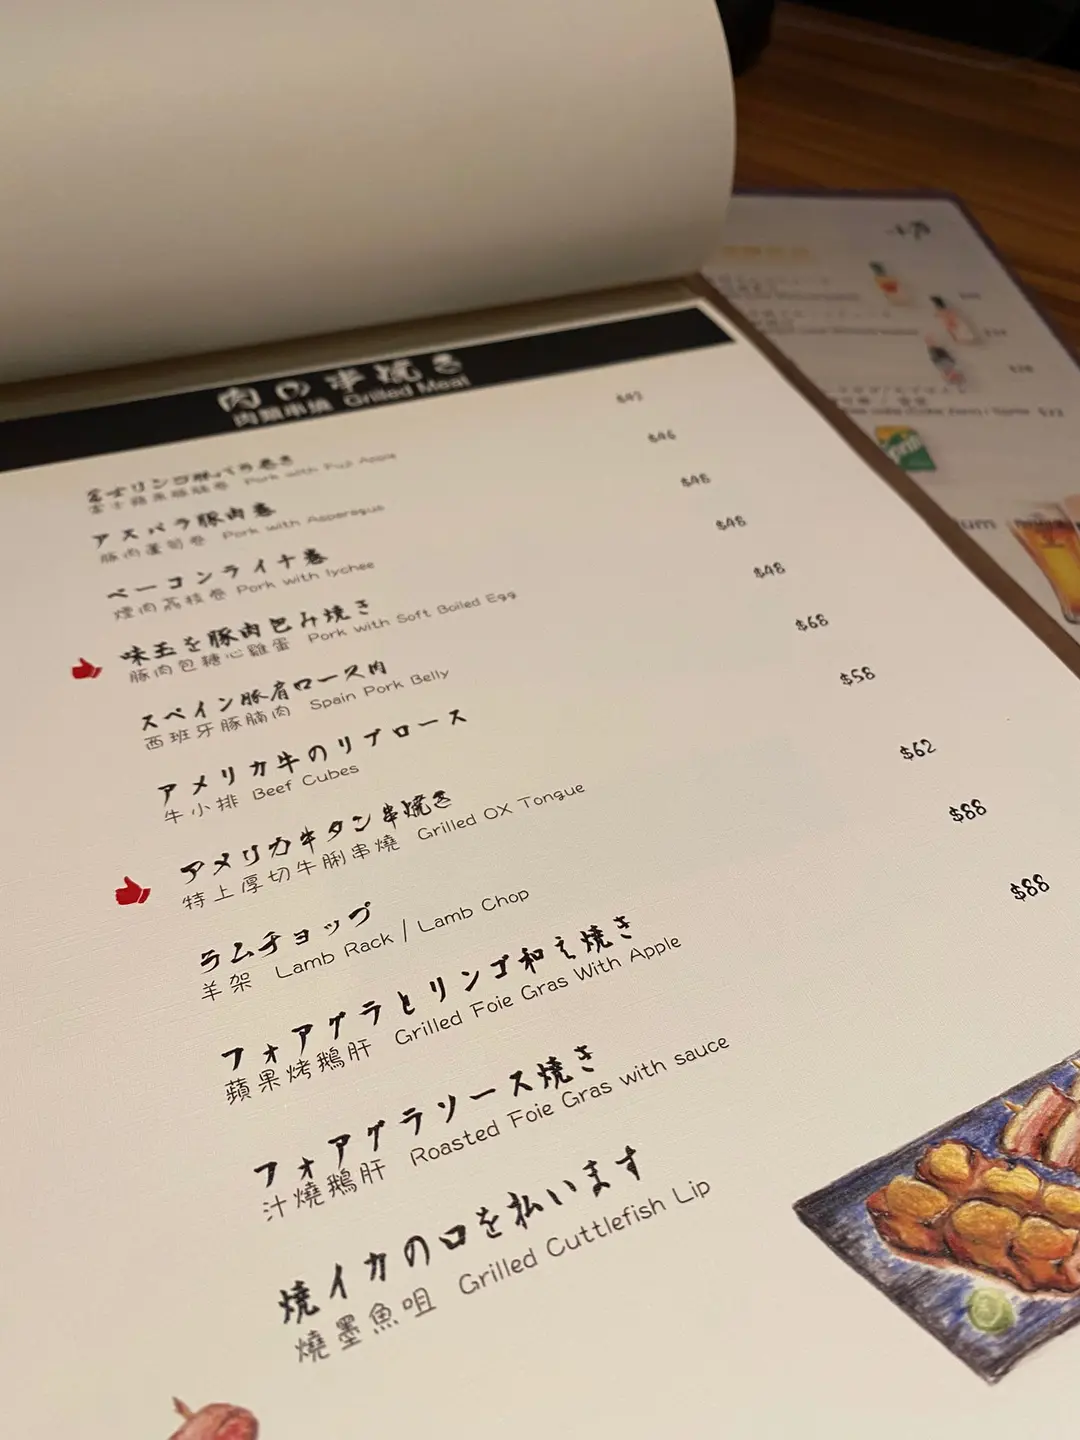 肉の串焼き
肉類串燒 Grilled Meat
富士リンゴ豚バラ巻き
富士蘋果豚腩卷 Pork with Fuji Apple
アスパラ豚肉巻 $46
豚肉蘆筍卷 Pork with Asparagus
ベーコンライチ巻 $48
煙肉荔枝卷 Pork with lychee
味玉を豚肉包み焼き $48
豚肉包糖心雞蛋 Pork with Soft Boiled Egg
スペイン豚肩ロース肉 $48
西班牙豚腩肉 Spain Pork Belly
アメリカ牛のリブロース $68
牛小排 Beef Cubes
アメリカ牛タン串焼き $58
特上厚切牛脷串燒 Grilled OX Tongue
ラムチョップ $62
羊架 Lamb Rack / Lamb Chop
フォアグラとリンゴ和え焼き $88
蘋果烤鵝肝 Grilled Foie Gras With Apple
フォアグラソース焼き $88
汁燒鵝肝 Roasted Foie Gras with sauce
焼イカの口を払います
燒墨魚咀 Grilled Cuttlefish Lip
Sprite